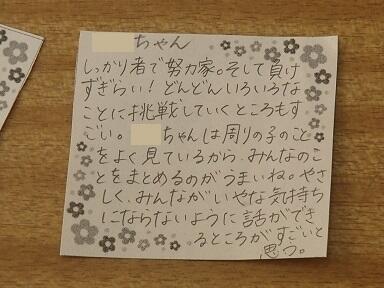 ちゃん
しっかり者で努力家。そして負け
ずぎらい！どんどんいろいろな
ことに挑戦していくところもす
ごい。ちゃんは周りの子のこと
をよく見ているから、みんなのこ
とをまとめるのがうまいね。やさ
しく、みんながいやな気持ち
にならないように話ができ
るところがすごいと
思う。